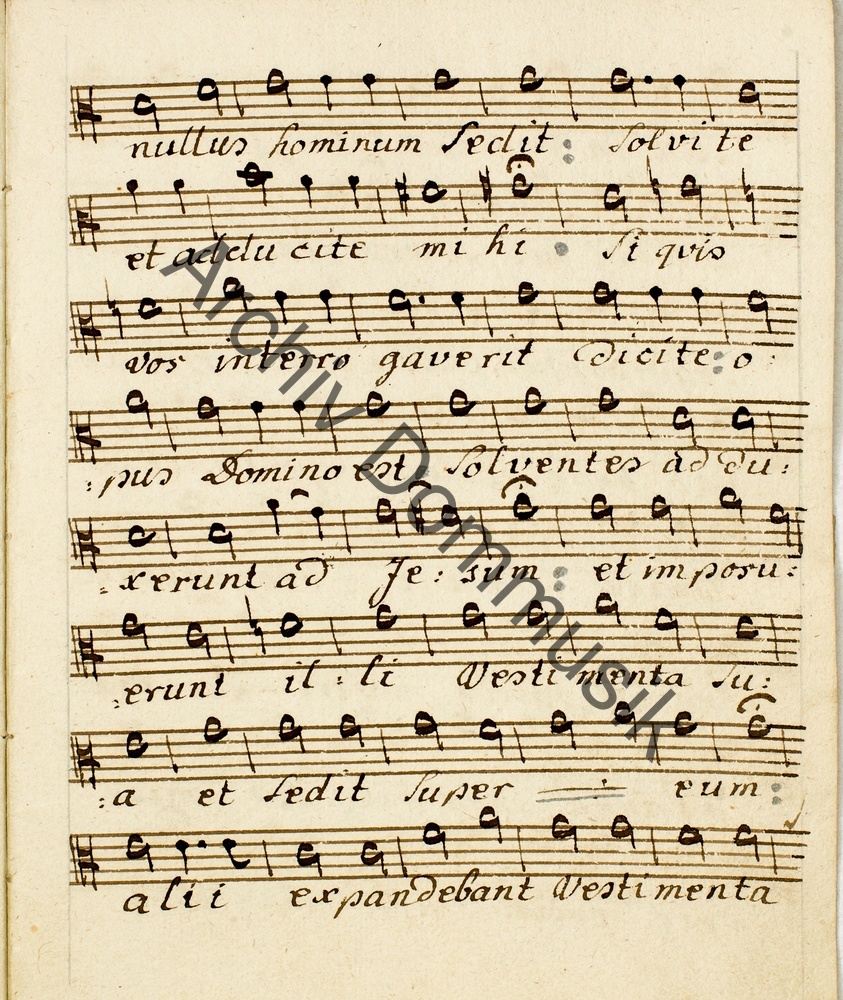 nullus hominum sedit: solvite
et adducite mihi. si quis
vos interro gaverit dicite: o:
:pus Domino est, solventes ad du:
:xerunt ad Je: sum: et imposu:
:erunt il: li Vestimenta su:
:a et sedit super eum:
alii expandebant Vestimenta
Archiv Dommusik